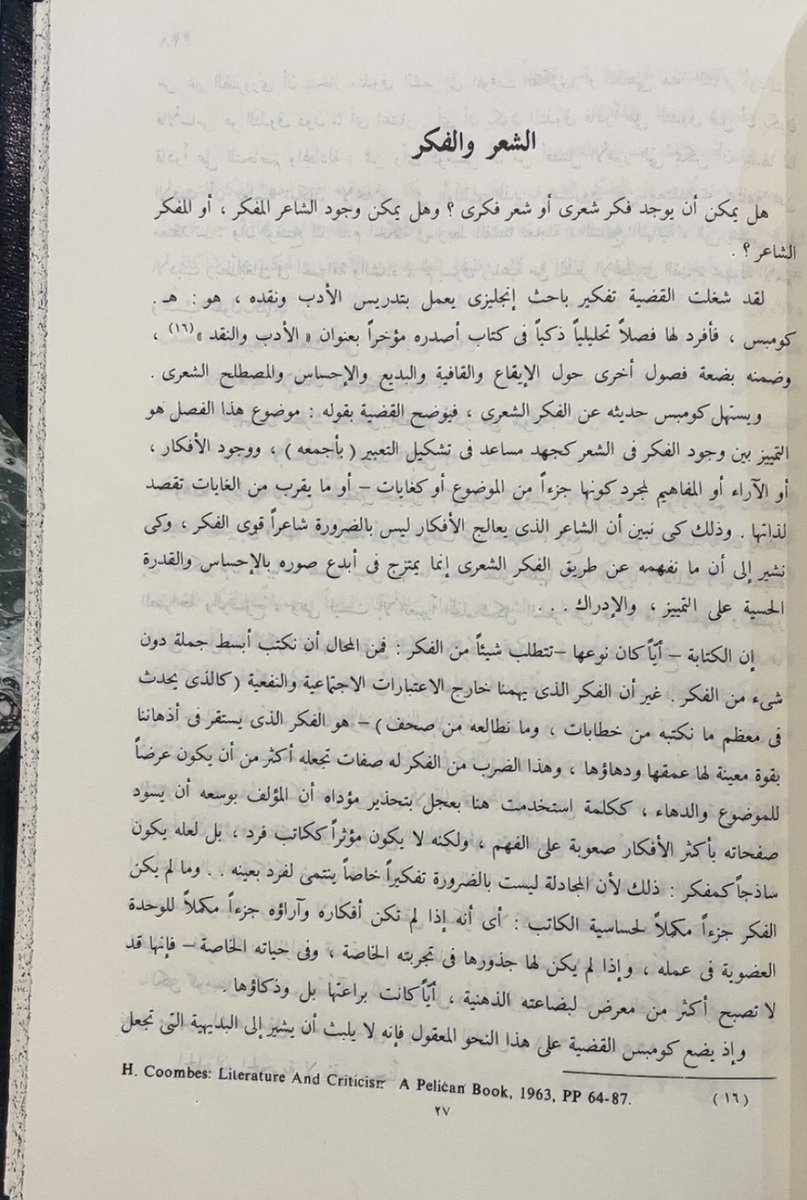 الشعر والفكر
هل يمكن أن يوجد فكر شعرى أو شعر فكرى ؟ وهل يمكن وجود الشاعر المفكر ، أو المفكر
الشاعر ؟ .
لقد شغلت القضية تفكير باحث إنجليزى يعمل بتدريس الأدب ونقده ، هو : هـ .
كومبس ، فأفرد لها فصلاً تحليلياً ذكياً فى كتاب أصدره مؤخراً بعنوان « الأدب والنقد »(١٦) ،
وضمنه بضعة فصول أخرى حول الإيقاع والقافية والبديع والإحساس والمصطلح الشعرى .
ويستهل كومبس حديثه عن الفكر الشعرى ، فيوضح القضية بقوله : موضوع هذا الفصل هو
التمييز بين وجود الفكر فى الشعر كجهد مساعد فى تشكيل التعبير ( بأجمعه ) ، ووجود الأفكار ،
أو الآراء أو المفاهيم لمجرد كونها جزءاً من الموضوع أو كغايات – أو ما يقرب من الغايات تقصد
لذاتها . وذلك كى نبين أن الشاعر الذى يعالج الأفكار ليس بالضرورة شاعراً قوى الفكر ، وكى
نشير إلى أن ما نفهمه عن طريق الفكر الشعرى إنما يمتزج فى أبدع صوره بالإحساس والقدرة
الحسية على التمييز ، والإدراك . . .
إن الكتابة – أيّاً كان نوعها –تتطلب شيئاً من الفكر : فمن المحال أن نكتب أبسط جملة دون
شىء من الفكر . غير أن الفكر الذى يهمنا خارج الاعتبارات الاجتماعية والنفعية ( كالذى يحدث
فى معظم ما نكتبه من خطابات ، وما نطالعه من صحف ) – هو الفكر الذى يستقر فى أذهاننا
بقوة معينة لها عمقها ودهاؤها ، وهذا الضرب من الفكر له صفات تجعله أكثر من أن يكون عرضاً
للموضوع والدهاء ، ككلمة استخدمت هنا بعجل بتحذير مؤداه أن المؤلف بوسعه أن يسود
صفحاته بأكثر الأفكار صعوبة على الفهم ، ولكنه لا يكون مؤثراً ككاتب فرد ، بل لعله يكون
ساذجاً كمفكر : ذلك لأن المجادلة ليست بالضرورة تفكيراً خاصاً ينتمى لفرد بعينه . . وما لم يكن
الفكر جزءاً مكملاً لحساسية الكاتب : أى أنه إذا لم تكن أفكاره وآراؤه جزءاً مكملاً للوحدة
العضوية فى عمله ، وإذا لم يكن لها جذورها فى تجربته الخاصة ، وفى حياته الخاصة – فإنها قد
لا تصبح أكثر من معرض لبضاعته الذهنية ، أيّاً كانت براعتها بل وذكاؤها .
وإذ يضع كومبس القضية على هذا النحو المعقول فإنه لا يلبث أن يشير إلى البديهية التى تجعل
(١٦) H. Coombes: Literature And Criticism A Pelican Book, 1963, PP 64-87.
٢٧